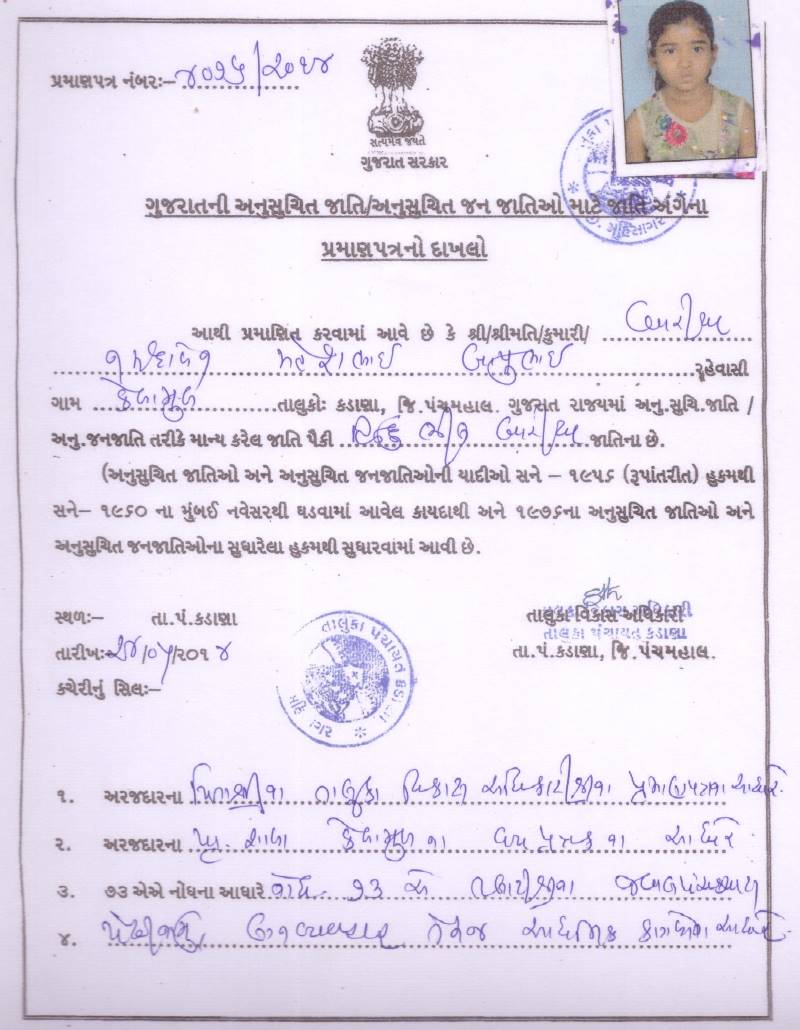 પ્રમાણપત્ર નંબરઃ-
સત્યમેવ જયતે
ગુજરાત સરકાર
ગુજરાતની અનુસુચિત જાતિ/અનુસુચિત જન જાતિઓ માટે જાતિ અંગેંના
પ્રમાણપત્રનો દાખલો
આથી પ્રમાણિત કરવામાં આવે છે કે શ્રી/શ્રીમતિ/કુમારી/ બારીયા
મહેશભાઈ બાબુભાઈ રહેવાસી
ગામ કેળામુળ તાલુકોઃ કડાણા, જિ.પંચમહાલ. ગુજરાત રાજ્યમાં અનુ.સુચિ.જાતિ /
અનુ.જનજાતિ તરીકે માન્ય કરેલ જાતિ પૈકી હિન્દુ ભીલ બારીયા જાતિના છે.
(અનુસુચિત જાતિઓ અને અનુસુચિત જનજાતિઓની યાદીઓ સને – ૧૯૫૬ (રૂપાંતરીત) હુકમથી
સને– ૧૯૬૦ ના મુંબઈ નવેસરથી ઘડવામાં આવેલ કાયદાથી અને ૧૯૭૬ના અનુસુચિત જાતિઓ અને
અનુસુચિત જનજાતિઓના સુધારેલા હુકમથી સુધારવામાં આવી છે.
સ્થળઃ– તા.પં.કડાણા તાલુકા વિકાસ અધિકારી
તાલુકા પંચાયત કડાણા
તારીખઃ- /૨૦૧૪ તા.પં.કડાણા, જિ.પંચમહાલ.
કચેરીનું સિલઃ–
તાલુકા પંચાયત કડાણા
૧. અરજદારના પિતાશ્રીના તાલુકા વિકાસ અધિકારીશ્રીના પ્રમાણપત્રના આધારે
૨. અરજદારના પ્રા. શાળા કેળામુળ ના વય પત્રક ના આધારે
૩. ૭૩ એએ નોધના આધારે ૭૩ એ તલાટીશ્રીના
૪. પેઢીનામું તેમજ આધારે